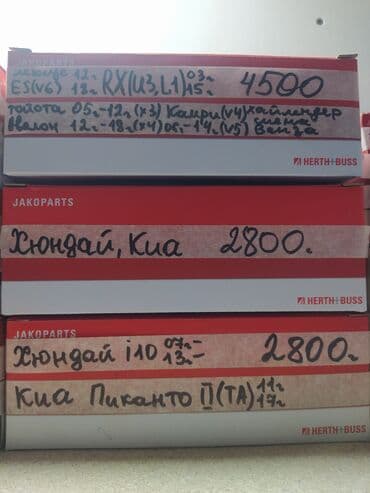 лексус 12г. RX(U3,L1) 03г. 4500
ES(V6) 18г. 15г.
тойота 05г.-12г.(х3) Камри(v4) хайлендер
Авалон 12г.-18г.(х4) 05г.-14г.(v5) сиена Венза
HERTH+BUSS
JAKOPARTS
Хюндай, Киа 2800.
HERTH+BUSS
JAKOPARTS
Хюндай i10 07г- 13г- 2800г
Киа Пиканто II(TA) 11г 17г
HERTH+BUSS